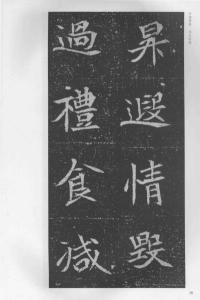 昇遐情毀
過禮食減